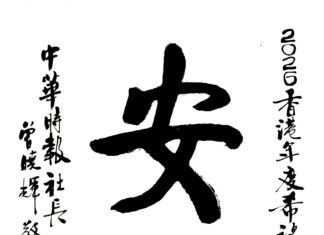 2026香港年度希
安
中華時報社長
曾曉輝